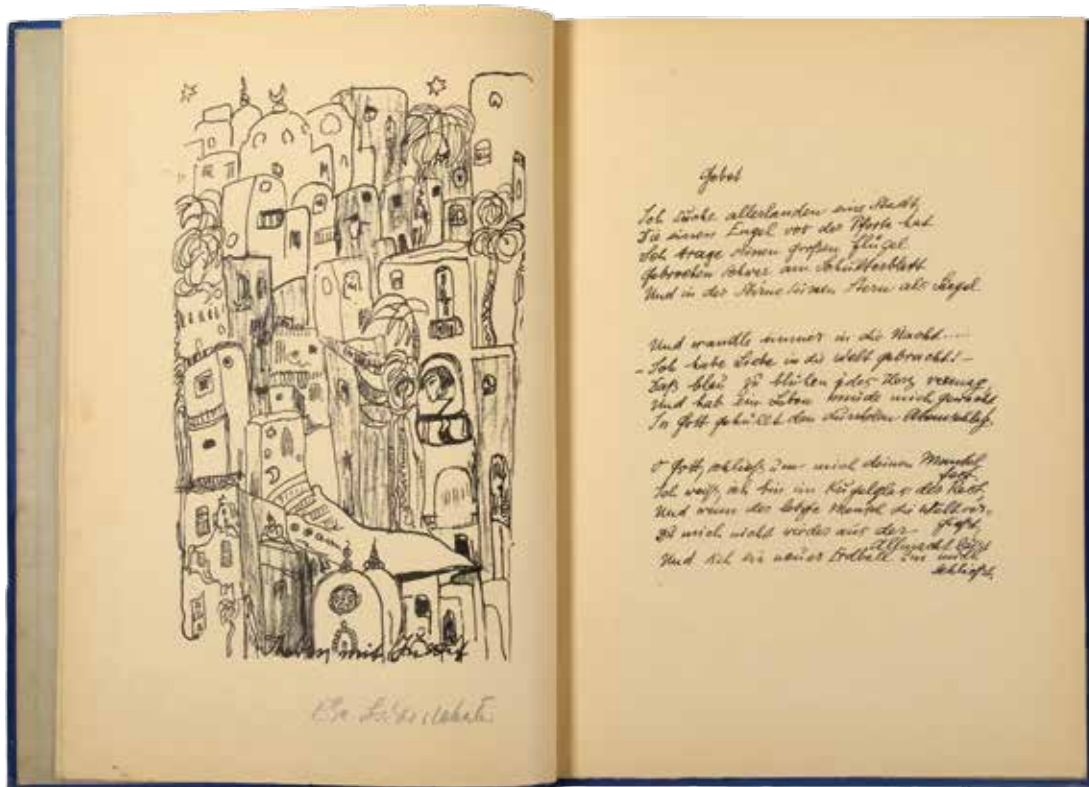 Theben mit Jussuf
Else Lasker-Schüler
Gebet
Ich suche allerlanden eine Stadt,
Die einen Engel vor der Pforte hat
Ich trage seinen großen Flügel
Gebrochen schwer am Schulterblatt
Und in der Stirne seinen Stern als Siegel
Und wandle immer in die Nacht.....
- Ich habe Liebe in die Welt gebracht! -
Daß blau zu blühen jedes Herz vermag,
Und hab ein Leben müde mich gewacht
In Gott gehüllt den dunklen Atemschlag.
O Gott, schließ um mich deinen Mantel
fest
Ich weiß, ich bin im Kugelglas der Rest,
Und wenn der letzte Mensch die Welt ver-
gießt,
Du mich nicht wieder aus der
Allmacht läßt
Und sich ein neuer Erdball um mich
schließt.